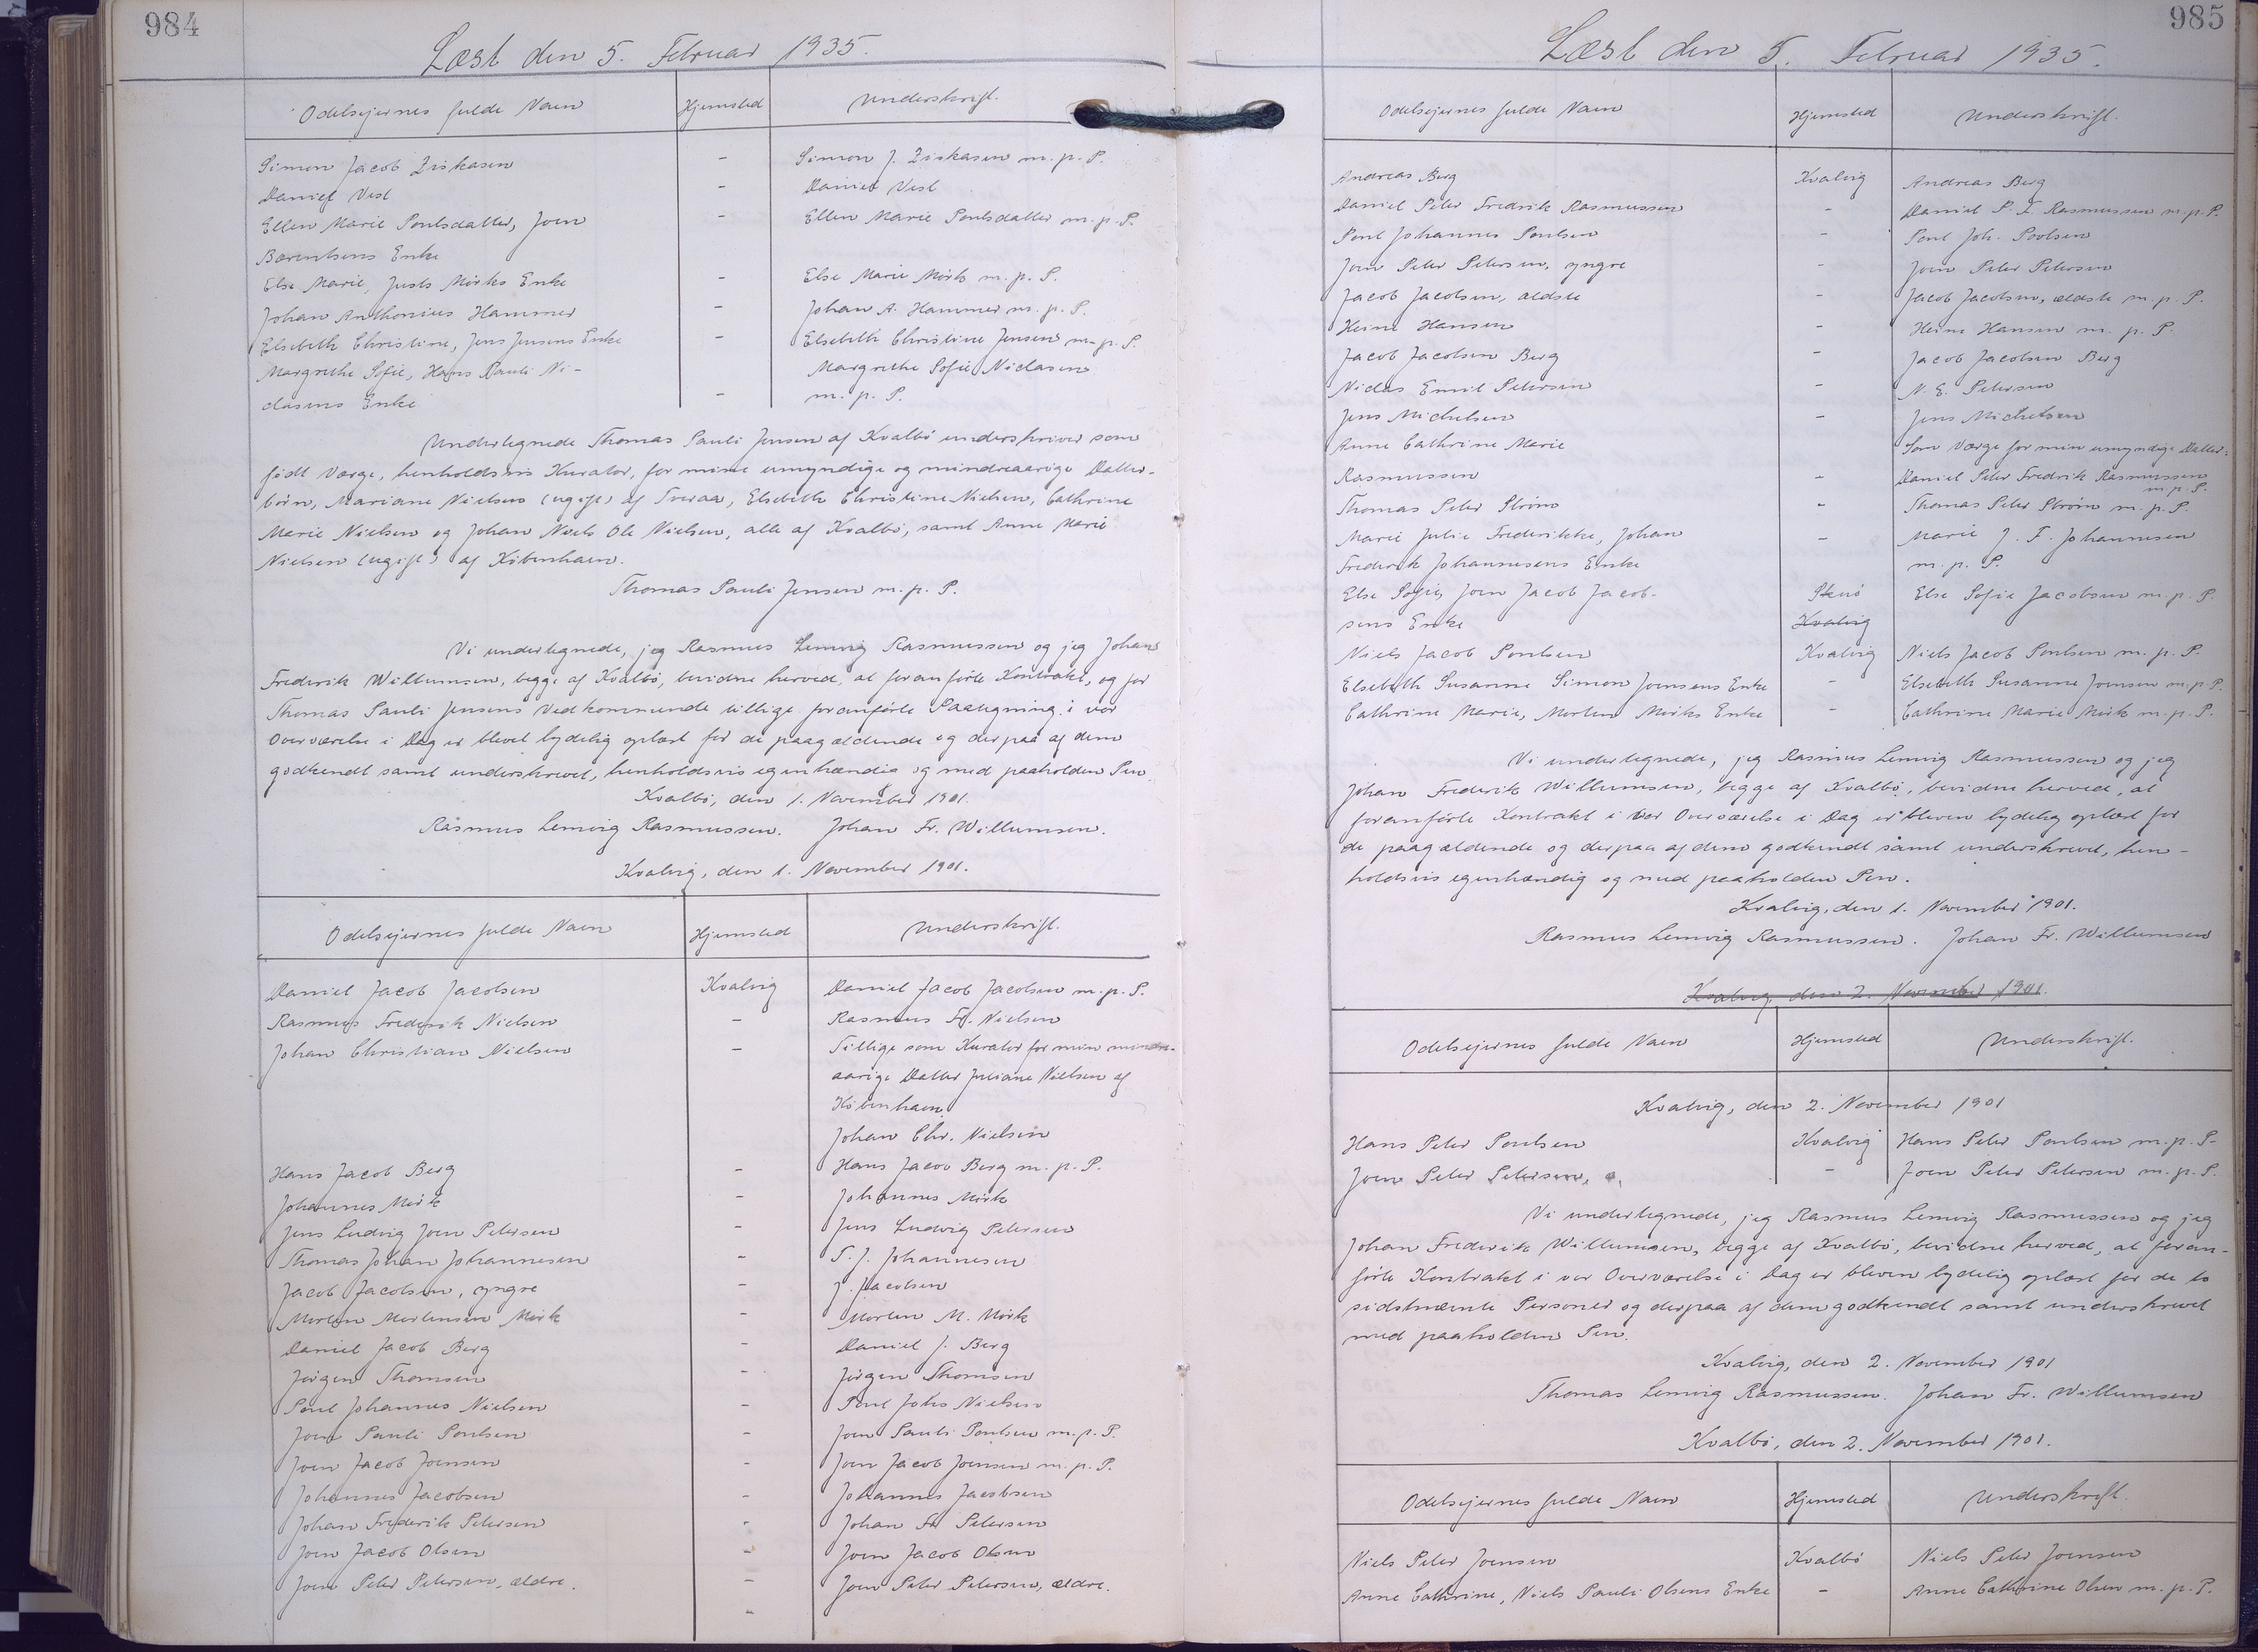 984
Læst den 5. Februar 1935.
Odelsejernes fulde Navn Hjemsted Underskrift.
Simon Jacob Ziskasen - Simon J. Ziskasen m. p. P.
Daniel Vest - Daniel Vest
Ellen Marie Poulsdatter, Joen - Ellen Marie Poulsdatter m. p. P.
Barentsens Enke
Else Marie, Justs Mörks Enke - Else Marie Mörk m. p. P.
Johan Anthonius Hammer - Johan A. Hammer m. p. P.
Elsebeth Christine, Jens Jensens Enke - Elsebeth Christine Jensen m. p. P.
Margrethe Sofie, Hans Pauli Ni- Margrethe Sofie Niclasen
clasens Enke - m. p. P.
Undertegnede Thomas Pauli Jensen af Kvalbö underskriver som
födt Værge, henholdsvis Kurator, for mine umyndige og mindreaarige Datter-
börn, Mariane Nielsen (ugift) af Tveraa, Elsebeth Christine Nielsen, Cathrine
Marie Nielsen og Johan Niels Ole Nielsen, alle af Kvalbö, samt Anne Marie
Nielsen (ugift) af Köbenhavn.
Thomas Pauli Jensen m. p. P.
Vi undertegnede, jeg Rasmus Lemvig Rasmussen og jeg Johan
Frederik Willumsen, begge af Kvalbö, bevidne herved, at foranförte Kontrakt, og for
Thomas Pauli Jensens Vedkommende tillige foranförte Paategning i vor
Overværelse i Dag er blevet lydelig oplæst for de paagældende og derpaa af dem
godkendt samt underskrevet, henholdsvis egenhændig og med paaholden Pen.
Kvalbö, den 1. November 1901.
Rasmus Lemvig Rasmussen. Johan Fr. Willumsen.
Kvalvig, den 1. November 1901.
Odelsejernes fulde Navn Hjemsted Underskrift.
Daniel Jacob Jacobsen Kvalvig Daniel Jacob Jacobsen m. p. P.
Rasmus Frederik Nielsen - Rasmus Fr. Nielsen
Johan Christian Nielsen - Tillige som Kurator for min mindre-
aarige Datter Juliane Nielsen af
Köbenhavn
Johan Chr. Nielsen
Hans Jacob Berg - Hans Jacob Berg m. p. P.
Johannes Mörk - Johannes Mörk
Jens Ludvig Joen Petersen - Jens Ludvig Petersen
Thomas Johan Johannesen - T. J. Johannesen
Jacob Jacobsen, yngre - J. Jacobsen
Morten Mortensen Mörk - Morten M. Mörk
Daniel Jacob Berg - Daniel J. Berg
Jörgen Thomsen - Jörgen Thomsen
Poul Johannes Nielsen - Poul Johs Nielsen
Joen Pauli Poulsen - Joen Pauli Poulsen m. p. P.
Joen Jacob Joensen - Joen Jacob Joensen m. p. P.
Johannes Jacobsen - Johannes Jacobsen
Johan Frederik Petersen - Johan Fr Petersen
Joen Jacob Olsen - Joen Jacob Olsen
Joen Peter Petersen, ældre. - Joen Peter Petersen, ældre.
-
985
Læst den 5. Februar 1935.
Odelsejernes fulde Navn Hjemsted Underskrift.
Andreas Berg Kvalvig Andreas Berg
Daniel Peter Fredrik Rasmussen - Daniel P. F. Rasmussen m. p. P.
Poul Johannes Poulsen - Poul Joh. Poulsen
Joen Peter Petersen, yngre - Joen Peter Petersen
Jacob Jacobsen, ældste - Jacob Jacobsen, ældste m. p. P.
Heine Hansen - Heine Hansen m. p. P.
Jacob Jacobsen Berg - Jacob Jacobsen Berg
Niclas Emil Petersen - N. E. Petersen
Jens Michelsen - Jens Michelsen
Anne Cathrine Marie Som Værge for min umyndige Datter:
Rasmussen - Daniel Peter Fredrik Rasmussen
m. p. P.
Thomas Peter Ström - Thomas Peter Ström m. p. P.
Marie Julie Frederikke, Johan - Marie J. F. Johannesen
Frederik Johannesens Enke m. p. P.
Else Sofie, Joen Jacob Jacob- Skuö Else Sofie Jacobsen m. p. P.
sens Enke Kvalvig
Niels Jacob Poulsen Kvalvig Niels Jacob Poulsen m. p. P.
Elsebeth Susanne Simon Joensens Enke - Elsebeth Susanne Joensen m. p. P.
Cathrine Marie, Morten Mörks Enke - Cathrine Marie Mörk m. p. P.
Vi undertegnede, jeg Rasmus Lemvig Rasmussen og jeg
Johan Frederik Willumsen, begge af Kvalbö, bevidne herved, at
foranförte Kontrakt i vor Overværelse i Dag er bleven lydelig oplæst for
de paagældende og derpaa af dem godkendt samt underskrevet, hen-
holdsvis egenhændig og med paaholden Pen.
Kvalvig, den 1. November 1901.
Rasmus Lemvig Rasmussen. Johan Fr. Willumsen
Kvalvig, den 2. November 1901.
Odelsejernes fulde Navn Hjemsted Underskrift.
Kvalvig, den 2. November 1901
Hans Peter Poulsen Kvalvig Hans Peter Poulsen m. p. P.
Joen Peter Petersen, - Joen Peter Petersen m. p. P.
Vi undertegnede, jeg Rasmus Lemvig Rasmussen og jeg
Johan Frederik Willumsen, begge af Kvalbö, bevidne herved, at foran-
förte Kontrakt i vor Overværelse i Dag er bleven lydelig oplæst for de to
sidstnævnte Personer og derpaa af dem godkendt samt underskrevet
med paaholden Pen.
Kvalvig, den 2. November 1901
Thomas Lemvig Rasmussen. Johan Fr. Willumsen
Kvalbö, den 2. November 1901.
Odelsejernes fulde Navn Hjemsted Underskrift.
Niels Peter Joensen Kvalbö Niels Peter Joensen
Anne Cathrine, Niels Pauli Olsens Enke - Anne Cathrine Olsen m. p. P.